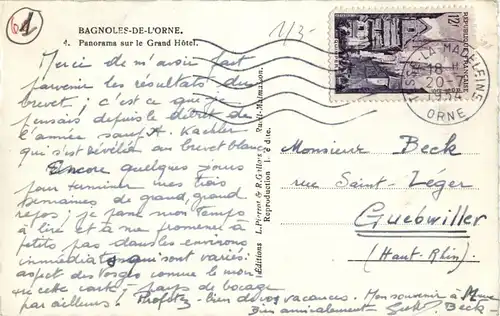 1
BAGNOLES-DE-L'ORNE.
4. Panorama sur le Grand Hôtel.
1/3-
12F
REPUBLIQUE FRANÇAISE
LA-MADELEINE
18 H
20-7
1954
ORNE
Merci de m'avoir fait
parvenir les résultats du
brevet; c'est ce que je
pensais depuis le début de
l'année sauf A. Kachler
qui s'est dévélée au brevet blanc.
Encore quelques jours
pour terminer mes trois
semaines de grand, grand
repos; je passe mon temps
à lire et à me promener à
petits pas dans les environs
immédiats qui sont variés:
aspect des Vosges comme le montre
cette carte, pays de bocage
par ailleurs. Profitez-bien de vos vacances. Mon souvenir à Mme
Bien amicalement Beck.
Éditions L. Pierrot & R. Grillère Rueil-Malmaison.
Reproduction Interdite.
Monsieur Beck
rue Saint-Léger
Guebwiller
(Haut-Rhin)